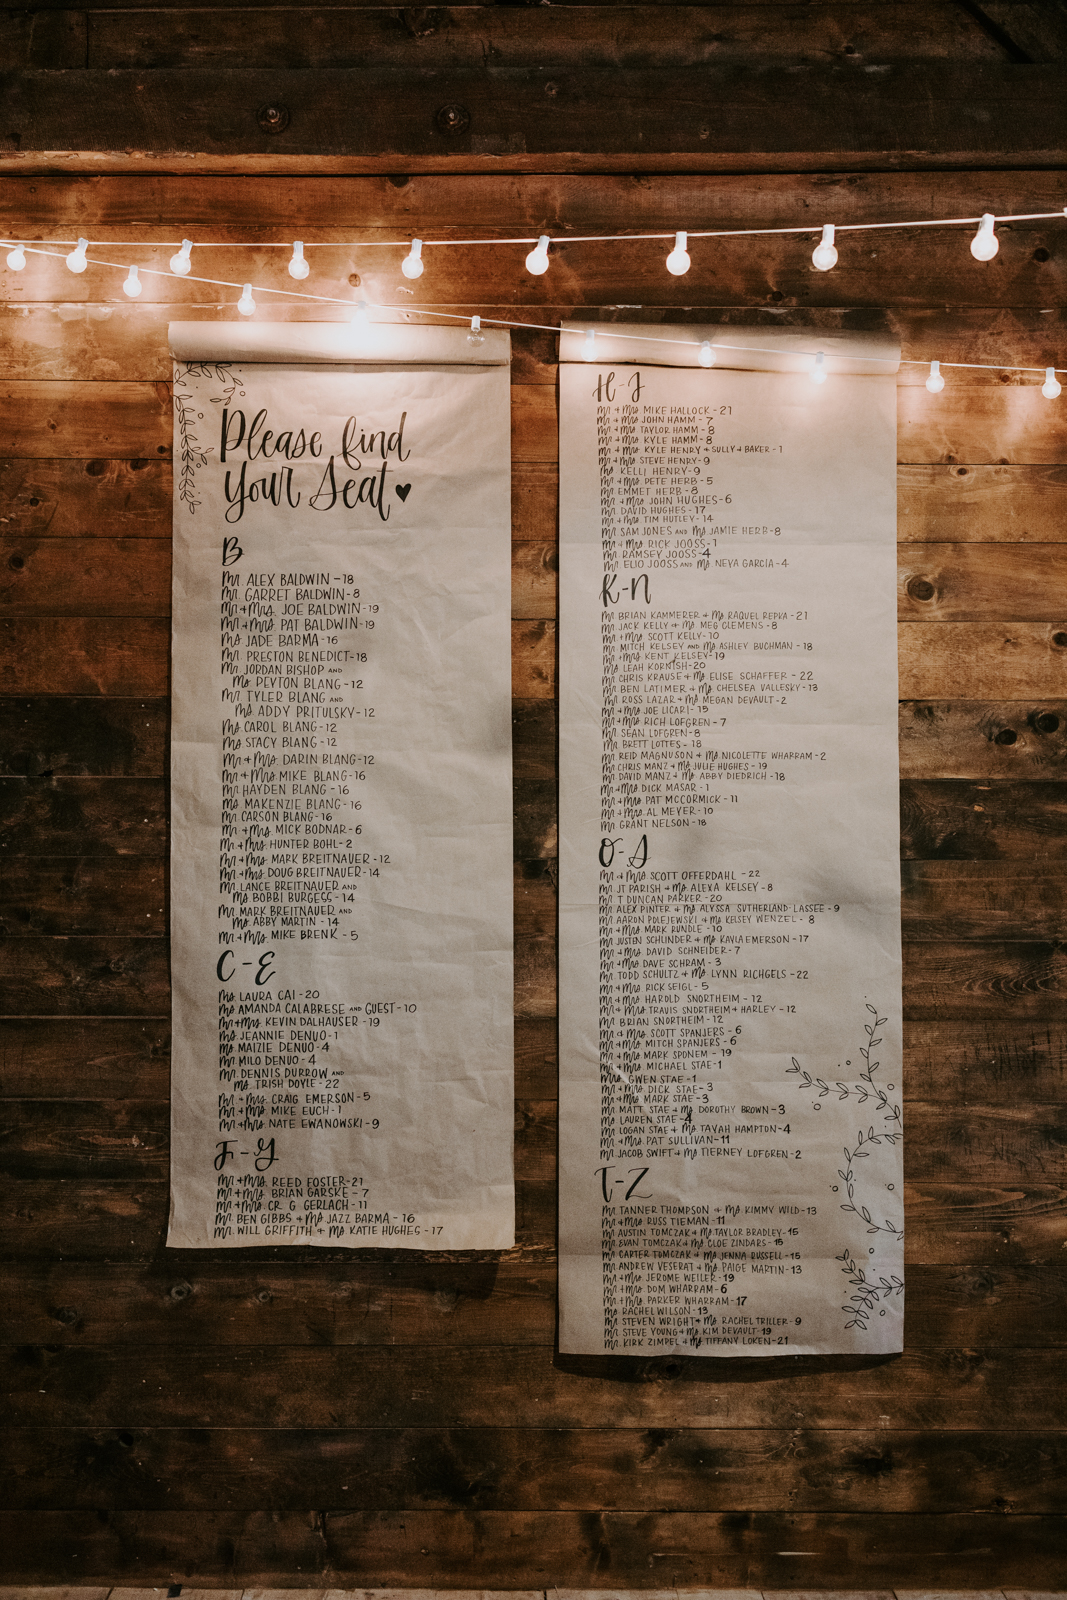 Please find
Your Seat
B
Mr. ALEX BALDWIN - 18
Mr. GARRET BALDWIN - 8
Mr + Mrs. JOE BALDWIN - 19
Mr. + Mrs. PAT BALDWIN - 19
Ms JADE BARMA - 16
Mr. PRESTON BENEDICT - 18
Mr. JORDAN BISHOP AND
Ms PEYTON BLANG - 12
Mr. TYLER BLANG AND
Ms. ADDY PRITULSKY - 12
Ms. CAROL BLANG - 12
Ms STACY BLANG - 12
Mr + Mrs. DARIN BLANG - 12
Mr + Mrs. MIKE BLANG - 16
Mr. HAYDEN BLANG - 16
Ms. MAKENZIE BLANG - 16
Mr. CARSON BLANG - 16
Mr + Mrs. MICK BODNAR - 6
Mr + Mrs. HUNTER BOHL - 2
Mr + Mrs. MARK BREITNAUER - 12
Mr + Mrs. DOUG BREITNAUER - 14
Mr. LANCE BREITNAUER AND
Ms. BOBBI BURGESS - 14
Mr. MARK BREITNAUER AND
Ms. ABBY MARTIN - 14
Mr. + Mrs. MIKE BRENK - 5
C - E
Ms. LAURA CAI - 20
Ms AMANDA CALABRESE AND GUEST - 10
Mr + Mrs. KEVIN DALHAUSER - 19
Ms JEANNIE DENUO - 1
Ms. MAIZIE DENUO - 4
Mr. MILO DENUO - 4
Mr. DENNIS DURROW AND
Ms. TRISH DOYLE - 22
Mr. + Mrs. CRAIG EMERSON - 5
Mr + Mrs. MIKE EUCH - 1
Mr + Mrs. NATE EWANOWSKI - 9
F - G
Mr + Mrs. REED FOSTER - 21
Mr + Mrs. BRIAN GARSKE - 7
Mr + Mrs. CR. G GERLACH - 11
Mr. BEN GIBBS + Ms JAZZ BARMA - 16
Mr. WILL GRIFFITH + Ms. KATIE HUGHES - 17
H - J
Mr + Mrs. MIKE HALLOCK - 21
Mr + Mrs. JOHN HAMM - 7
Mr + Mrs. TAYLOR HAMM - 8
Mr + Mrs. KYLE HAMM - 8
Mr + Mrs. KYLE HENRY + SULLY + BAKER - 1
Mr + Mrs STEVE HENRY - 9
Ms. KELLI HENRY - 9
Mr + Mrs. PETE HERB - 5
Mr. EMMET HERB - 8
Mr + Mrs. JOHN HUGHES - 6
Mr. DAVID HUGHES - 17
Mr + Mrs. TIM HUTLEY - 14
Mr. SAM JONES AND Ms. JAMIE HERB - 8
Mr + Mrs. RICK JOOSS - 1
Mr. RAMSEY JOOSS - 4
Mr. ELIO JOOSS AND Ms. NEYA GARCIA - 4
K - N
Mr. BRIAN KAMMERER + Ms. RAQUEL REPKA - 21
Mr. JACK KELLY + Ms. MEG CLEMENS - 8
Mr. + Mrs SCOTT KELLY - 10
Mr. MITCH KELSEY AND Ms ASHLEY BUCHMAN - 18
Mr + Mrs. KENT KELSEY - 19
Ms LEAH KORNISH - 20
Mr. CHRIS KRAUSE + Ms ELISE SCHAFFER - 22
Mr. BEN LATIMER + Ms. CHELSEA VALLESKY - 13
Mr. ROSS LAZAR + Ms MEGAN DEVAULT - 2
Mr + Mrs JOE LICARI - 15
Mr + Mrs. RICH LOFGREN - 7
Mr. SEAN LOFGREN - 8
Mr. BRETT LOTTES - 18
Mr. REID MAGNUSON + Ms NICOLETTE WHARRAM - 2
Mr. CHRIS MANZ + Ms JULIE HUGHES - 19
Mr. DAVID MANZ + Ms ABBY DIEDRICH - 18
Mr + Mrs. DICK MASAR - 1
Mr + Mrs. PAT MCCORMICK - 11
Mr + Mrs. AL MEYER - 10
Mr. GRANT NELSON - 18
O - S
Mr + Mrs. SCOTT OFFERDAHL - 22
Mr. JT PARISH + Ms. ALEXA KELSEY - 8
Mr. T DUNCAN PARKER - 20
Mr. ALEX PINTER + Ms. ALYSSA SUTHERLAND-LASSEE - 9
Mr. AARON POLEJEWSKI + Ms KELSEY WENZEL - 8
Mr + Mrs MARK RUNDLE - 10
Mr. JUSTEN SCHLINDER + Ms KAYLA EMERSON - 17
Mr + Mrs. DAVID SCHNEIDER - 7
Mr + Mrs. DAVE SCHRAM - 3
Mr. TODD SCHULTZ + Ms LYNN RICHGELS - 22
Mr + Mrs. RICK SEIGL - 5
Mr + Mrs. HAROLD SNORTHEIM - 12
Mr + Mrs. TRAVIS SNORTHEIM + HARLEY - 12
Mr. BRIAN SNORTHEIM - 12
Mr + Mrs. SCOTT SPANJERS - 6
Mr + Mrs. MITCH SPANJERS - 6
Mr + Mrs MARK SPONEM - 19
Mr + Mrs. MICHAEL STAE - 1
Mrs. GWEN STAE - 1
Mr + Mrs. DICK STAE - 3
Mr + Mrs MARK STAE - 3
Mr. MATT STAE + Ms DOROTHY BROWN - 3
Ms. LAUREN STAE - 4
Mr. LOGAN STAE + Ms TAYAH HAMPTON - 4
Mr + Mrs. PAT SULLIVAN - 11
Mr. JACOB SWIFT + Ms TIERNEY LOFGREN - 2
T - Z
Mr. TANNER THOMPSON + Ms. KIMMY WILD - 13
Mr + Mrs. RUSS TIEMAN - 11
Mr. AUSTIN TOMCZAK + Ms TAYLOR BRADLEY - 15
Mr. EVAN TOMCZAK + Ms. CLOE ZINDARS - 15
Mr. CARTER TOMCZAK + Ms JENNA RUSSELL - 15
Mr. ANDREW VESERAT + Ms. PAIGE MARTIN - 13
Mr + Mrs JEROME WEILER - 19
Mr + Mrs. DOM WHARRAM - 6
Mr. + Mrs. PARKER WHARRAM - 17
Ms RACHEL WILSON - 13
Mr. STEVEN WRIGHT + Ms RACHEL TRILLER - 9
Mr. STEVE YOUNG + Ms KIM DEVAULT - 19
Mr. KIRK ZIMPEL + Ms TIFFANY LOKEN - 21